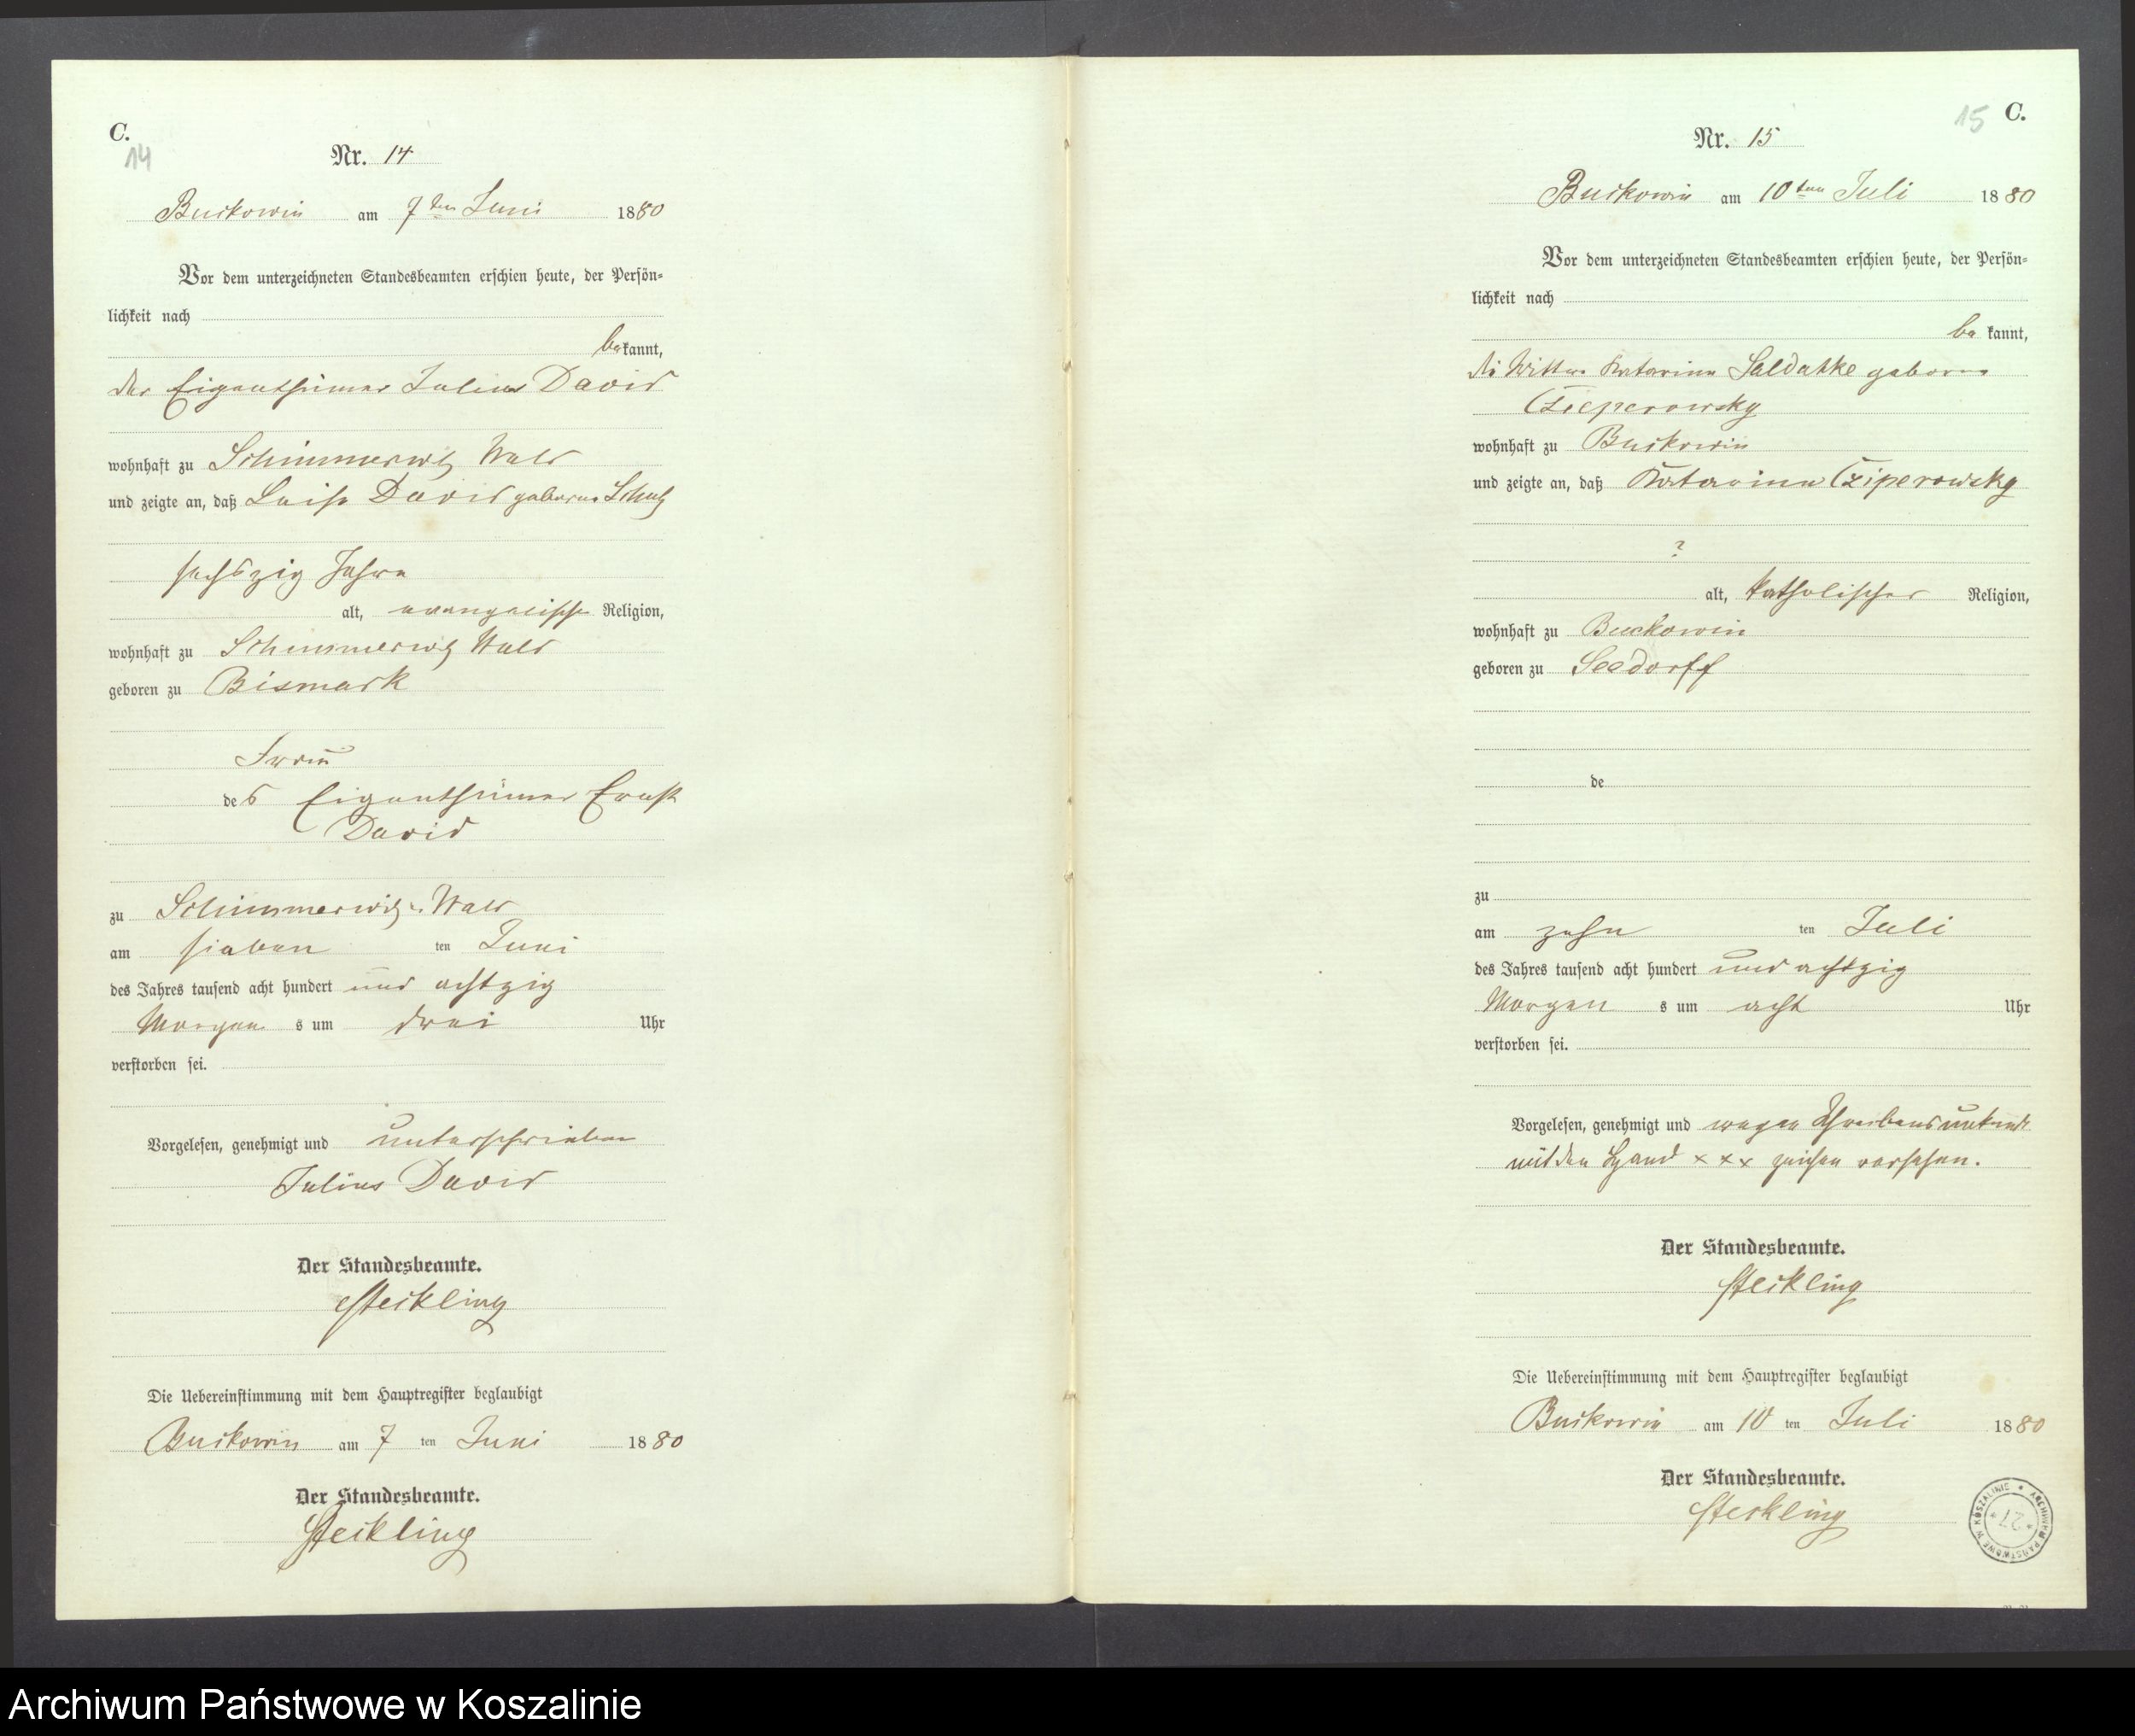 C.
14
Nr. 14
Buckowin am 7ten Juni 1880
Vor dem unterzeichneten Standesbeamten erschien heute, der Persön-
lichkeit nach
bekannt,
der Eigenthümer Julius David
wohnhaft zu Schimmerwitz Wald
und zeigte an, daß Luise David geborne Schulz
sechszig Jahre
alt, evangelische Religion,
wohnhaft zu Schimmerwitz Wald
geboren zu Bismark
Frau
des Eigenthümer Ernst
David
zu Schimmerwitz. Wald
am sieben ten Juni
des Jahres tausend acht hundert und achtzig
Morgen s um drei Uhr
verstorben sei.
Vorgelesen, genehmigt und unterschrieben
Julius David
Der Standesbeamte.
Steckling
Die Uebereinstimmung mit dem Hauptregister beglaubigt
Buckowin am 7 ten Juni 1880
Der Standesbeamte.
Steckling
15 C.
Nr. 15
Buckowin am 10ten Juli 1880
Vor dem unterzeichneten Standesbeamten erschien heute, der Persön-
lichkeit nach
be kannt,
die Wittwe Katarina Saldatke geborne
Czieperowsky
wohnhaft zu Buckowin
und zeigte an, daß Katarina Cziperowsky
?
alt, katholischer Religion,
wohnhaft zu Buckowin
geboren zu Seedorff
de
zu
am zehn ten Juli
des Jahres tausend acht hundert und achtzig
Morgen s um acht Uhr
verstorben sei.
Vorgelesen, genehmigt und wegen Schreibensunkunde
mit den Hand x x x zeichen versehen.
Der Standesbeamte.
Steckling
Die Uebereinstimmung mit dem Hauptregister beglaubigt
Buckowin am 10 ten Juli 1880
Der Standesbeamte.
Steckling
ARCHIWUM PAŃSTWOWE W KOSZALINIE
* 27 *
Archiwum Państwowe w Koszalinie